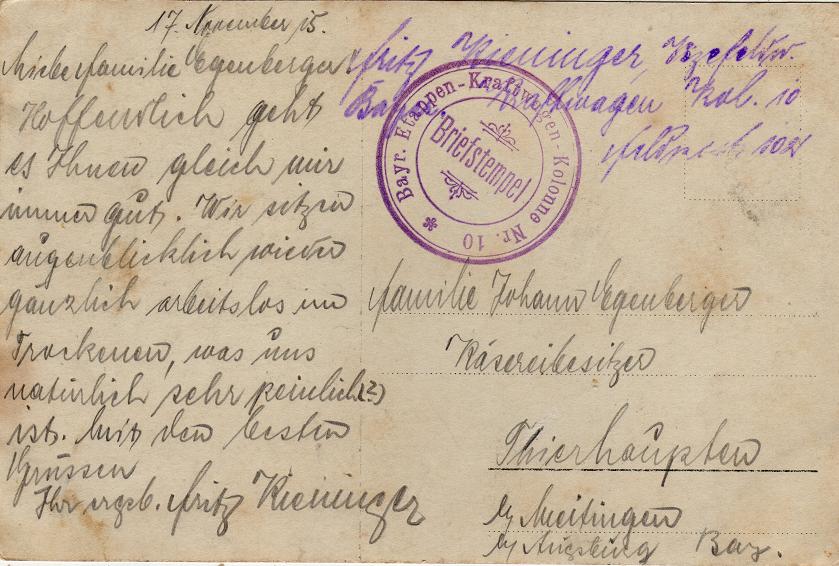 17. November 15.
Liebe Familie Egenberger!
Hoffentlich geht
es Ihnen gleich mir
immer gut. Wir sitzen
augenblicklich wieder
gänzlich arbeitslos im
Trockenen, was uns
natürlich sehr peinlich(?)
ist. Mit den besten
Grüssen
Ihr ergeb. Fritz Kieninger
Fritz Kieninger, Vzefeldw.
Bayr. Kraftwagen Kol. 10
Feldpost 102
Bayr. Etappen-Kraftwagen-Kolonne Nr. 10
Briefstempel
Familie Johann Egenberger
Käsereibesitzer
Thierhaupten
b/ Meitingen
b/ Augsburg Bay.